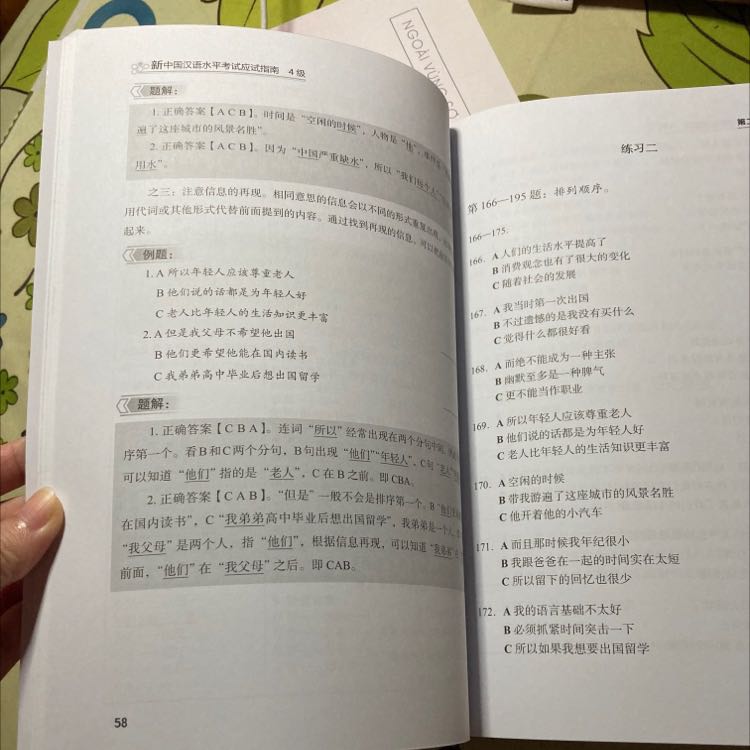 NGOÀI VÙNG SỢ
新中国汉语水平考试应试指南 4级
题解：
1. 正确答案【A C B】。时间是“空闲的时候”，人物是“他”，
遍了这座城市的风景名胜”。
2. 正确答案【A C B】。因为“中国严重缺水”，所以“我们每个人”
用水”。
之三：注意信息的再现。相同意思的信息会以不同的形式重复出现，
用代词或其他形式代替前面提到的内容。通过找到再现的信息，可以
起来。
例题：
1. A 所以年轻人应该尊重老人
B 他们说的话都是为年轻人好
C 老人比年轻人的生活知识更丰富
2. A 但是我父母不希望他出国
B 他们更希望他能在国内读书
C 我弟弟高中毕业后想出国留学
题解：
1. 正确答案【C B A】。连词“所以”经常出现在两个分句中
序第一个。看B和C两个分句，B句出现“他们”“年轻人”，C句“老人”
可以知道“他们”指的是“老人”，C在B之前。即CBA。
2. 正确答案【C A B】。“但是”一般不会是排序第一个。B“他们
在国内读书”，C“我弟弟高中毕业后想出国留学”，我弟弟是一个人，
“我父母”是两个人，指“他们”，根据信息再现，可以知道“我弟弟”在
前面，“他们”在“我父母”之后。即CAB。
58
第二
练习二
第166—195题：排列顺序。
166—175.
166. A 人们的生活水平提高了
B 消费观念也有了很大的变化
C 随着社会的发展
167. A 我当时第一次出国
B 不过遗憾的是我没有买什么
C 觉得什么都很好看
168. A 而绝不能成为一种主张
B 幽默至多是一种脾气
C 更不能当作职业
169. A 所以年轻人应该尊重老人
B 他们说的话都是为年轻人好
C 老人比年轻人的生活知识更丰富
170. A 空闲的时候
B 带我游遍了这座城市的风景名胜
C 他开着他的小汽车
171. A 而且那时候我年纪很小
B 我跟爸爸在一起的时间实在太短
C 所以留下的回忆也很少
172. A 我的语言基础不太好
B 必须抓紧时间突击一下
C 所以如果我想要出国留学